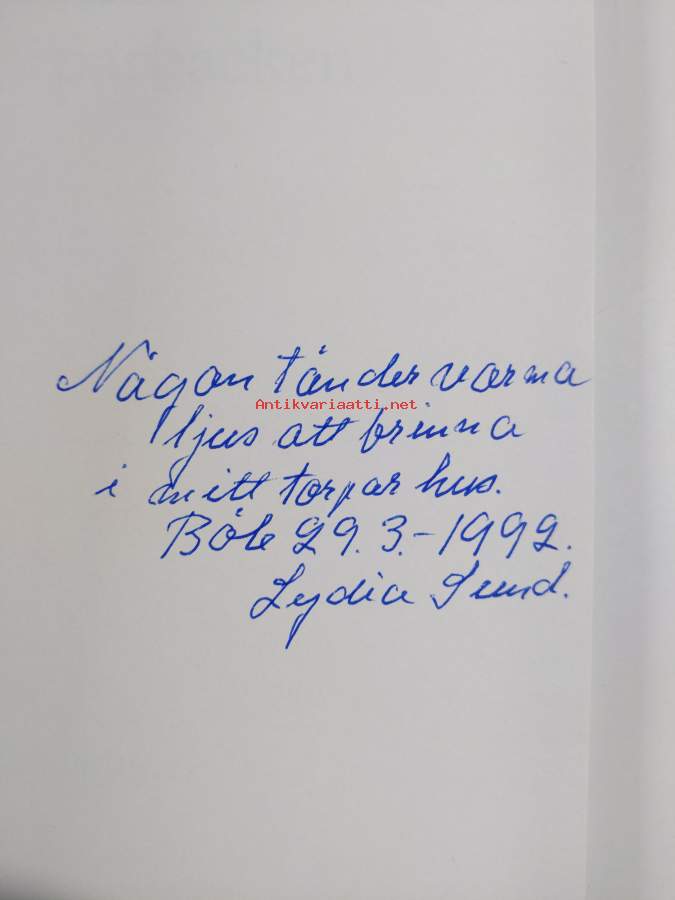 Någon tänder varma
Antikvariaatti.net
ljus att brinna
i mitt torparhus.
Böle 29.3.-1992.
Lydia Sund.